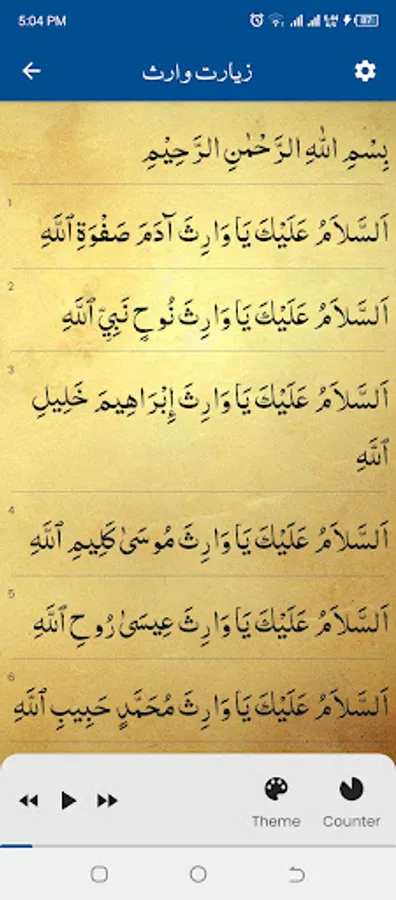 5:04 PM
87
زیارت وارث
بِسْمِ اللهِ الرَّحْمٰنِ الرَّحِيْمِ
1
اَلسَّلاَمُ عَلَيْكَ يَا وَارِثَ آدَمَ صَفْوَةِ ٱللَّهِ
2
اَلسَّلاَمُ عَلَيْكَ يَا وَارِثَ نُوحٍ نَبِيِّ ٱللَّهِ
3
اَلسَّلاَمُ عَلَيْكَ يَا وَارِثَ إِبْرَاهِيمَ خَلِيلِ
ٱللَّهِ
4
اَلسَّلاَمُ عَلَيْكَ يَا وَارِثَ مُوسَىٰ كَلِيمِ ٱللَّهِ
5
اَلسَّلاَمُ عَلَيْكَ يَا وَارِثَ عِيسَىٰ رُوحِ ٱللَّهِ
6
اَلسَّلاَمُ عَلَيْكَ يَا وَارِثَ مُحَمَّدٍ حَبِيبِ ٱللَّهِ
Theme
Counter